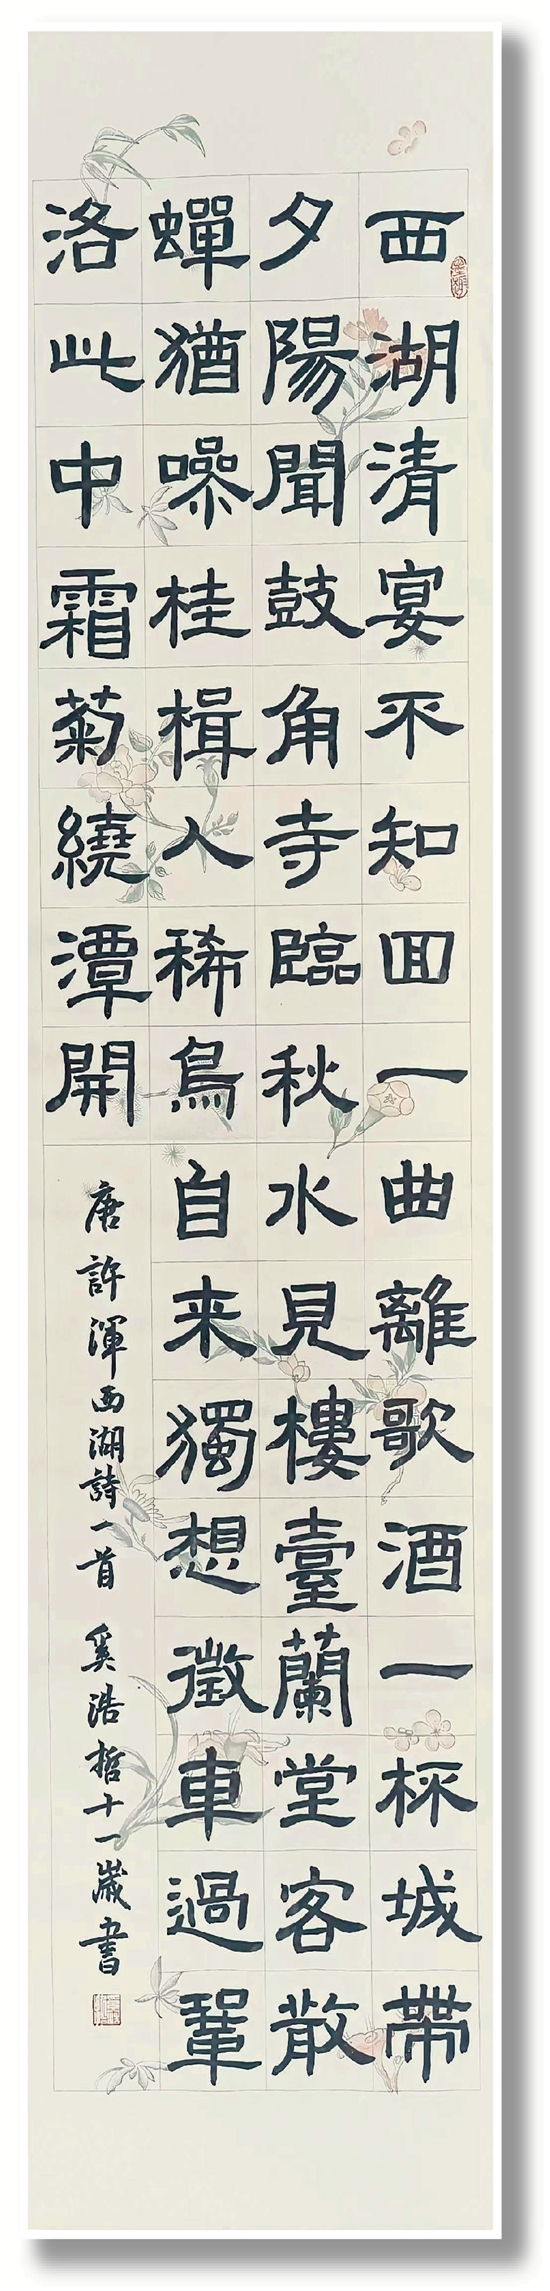 西湖清宴不知回一曲離歌酒一杯城帶
夕陽聞鼓角寺臨秋水見樓臺蘭堂客散
蟬猶噪桂楫人稀鳥自来獨想徵車過鞏
洛此中霜菊繞潭開
唐許渾西湖詩一首 奚浩哲十一歲書